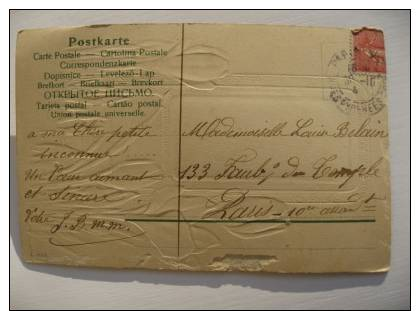 Postkarte
Carte Postale — Cartolina Postale
Correspondenzkarte
Dopisnice — Levelező-Lap
Brefkort — Briefkaart — Brevkort
ОТКРЫТОЕ ПИСЬМО.
Tarjeta postal — Cartão postal.
Union postale universelle.
a ma Chère petite
inconnue
Un Cœur aimant
et sincère
Votre J. B. m. m.
Mademoiselle
133 Faubg du Temple
Paris - 10e arrondt
PARIS